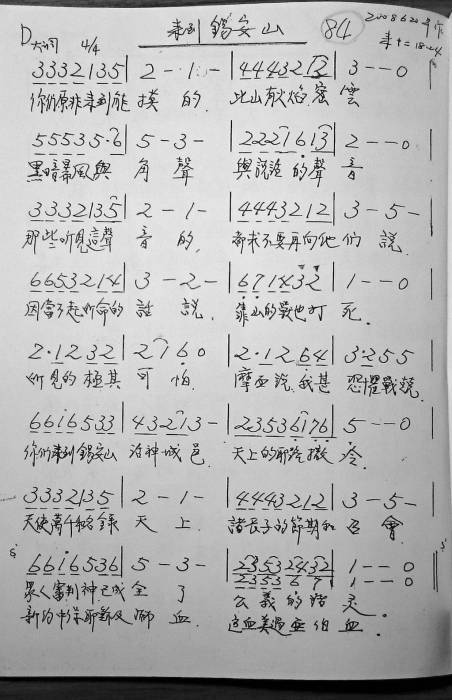 来到錫安山 84 2008 6 20
D大调 4/4 来十二18-24
3332135 | 2 - 1 - | 4443212 | 3 - - 0
你们原非来到能 摸 的. 此山有火焰.密 雲
55535·6 | 5 - 3 - | 2221613 | 2 - - 0
黑暗暴風與 角 聲 與說話的聲 音
3332135 | 2 - 1 - | 4443212 | 3 - 5 -
那些听見這聲 音 的. 都求不要再向他 们 說.
6653214 | 3 - 2 - | 671432 | 1 - - 0
因當不起所命的 話 說. 靠山的獸也打 死.
2·1232 | 2760 | 2·1264 | 3·255
所見的極其 可 怕. 摩西說.我甚 恐懼戰兢.
6616533 | 43213 - | 23536176 | 5 - - 0
你们来到錫安山 活神城邑. 天上的耶路撒 冷.
3332135 | 2 - 1 - | 4443212 | 3 - 5 -
天使萬千名錄 天 上. 諸長子的節期和 召 會.
6616536 | 5 - 3 - | 23532432 | 1 - - 0
2353671 | 1 - - 0
眾人審判神.已成 全 了 公義的諸 灵
新約中保耶穌及 灑 血. 這血美過亞伯 血.